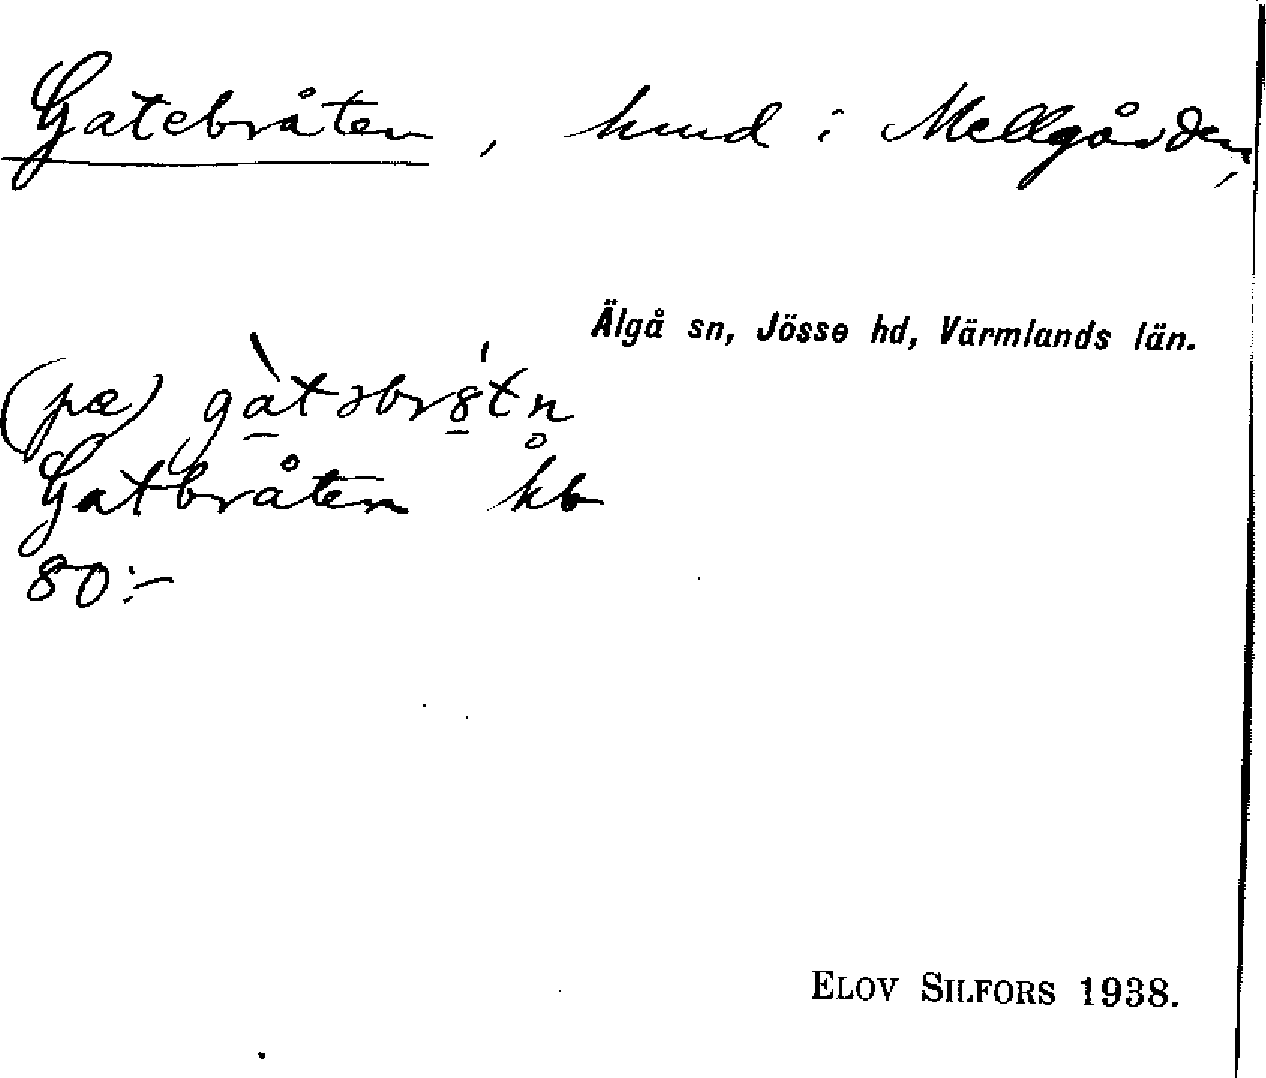 Gatebråten, hmd i Mellgården,
Älgå sn, Jösse hd, Värmlands län.
(pæ) gàtəbr8́tn
Gatbråten hb
80:-
ELOV SILFORS 1938.